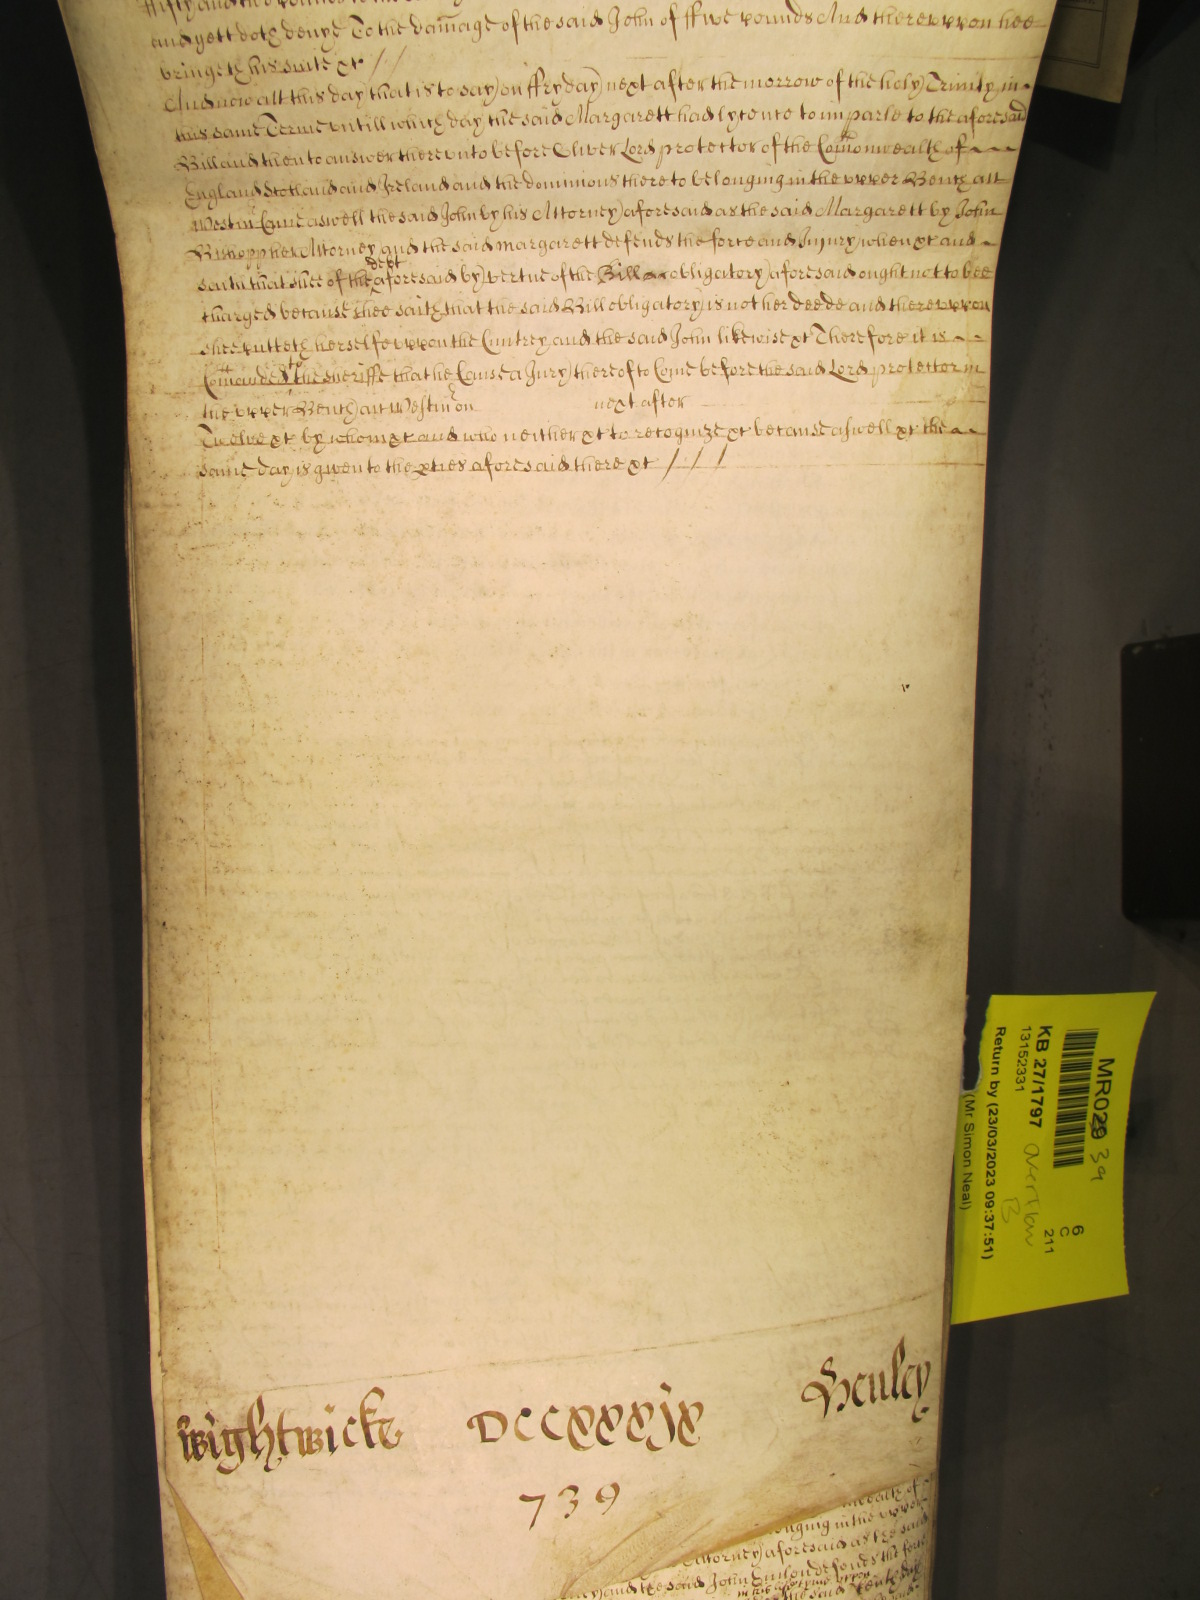 fifty and two pounds to the
and yett doth denye To the damage of the said John of ffive pounds And thereuppon hee
bringeth his suite &c //
And now att this day that is to say on ffryday next after the morrow of the holy Trinity in
this same Terme untill which day the said Margarett had lycence to imparle to the aforesaid
Bill and then to answer thereunto before Oliver Lord protector of the Comonwealth of
England Scotland and Ireland and the dominions thereto belonging in the upper Bench att
Westm Came aswell the said John by his Attorney aforesaid as the said Margarett by John
Bishopp her Attorney and the said Margarett defends the force and Injury when &c and
saith that shee of the debt aforesaid by vertue of the Bill obligatory aforesaid ought not to bee
charged because shee saith that the said Bill obligatory is not her deede and thereuppon
shee putteth herselfe uppon the Cuntrey and the said John likewise &c Therefore it is
Comanded to the sheriffe that he Cause a Jury thereof to Come before the said Lord protector in
the upper Bench att Westm on next after
Twelve &c by whom &c and who neither &c to recognize &c because aswell &c the
same day is given to the pties aforesaid there &c ///
Wightwicke DCCXXXIX Henley
739
wealth of
longing in the upper
Attorney aforesaid as the said
and the said John defends the force
the said
MR029 39
KB 27/1797
13152331
Return by (23/03/2023 09:37:51)
(Mr Simon Neal)
overflow
B
6
C
211